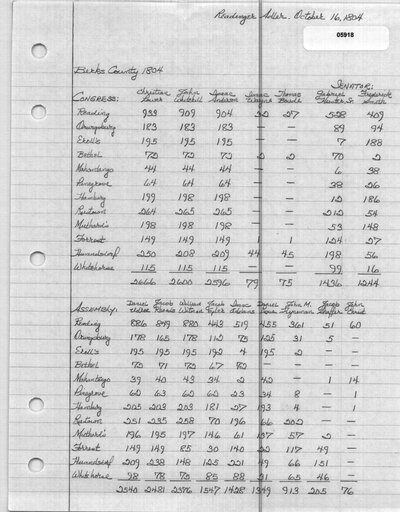 Readinger Adler. October 16, 1804
05918
Berks County 1804
SENATOR:
CONGRESS: Christian Lower John Whitehill Isaac Anderson Isaac Wayne Thomas Gabriel Hiester Jr. Frederick Smith
Reading 933 909 904 32 27 528 409
Orwigsburg 183 183 183 — — 89 94
Kroll's 195 195 195 — — 7 188
Bethel 72 72 72 2 2 70 2
Mahantango 44 44 44 — — 6 38
Pinegrove 64 64 64 — — 38 26
Hamburg 199 198 198 — — 12 186
Kutztown 264 265 265 — — 212 54
Muthard's 198 198 198 — — 53 148
Forrest 149 149 149 1 1 124 27
250 208 209 44 45 198 56
Whitehorse 115 115 115 — — 99 16
2666 2600 2596 79 75 1436 1244
ASSEMBLY: Daniel Jacob William Witman Jacob Epler Isaac Adams Daniel John M. Hyneman Jacob John
Reading 886 849 880 443 519 435 361 51 60
Orwigsburg 178 165 178 112 70 125 31 5 —
Kroll's 195 195 195 192 4 195 2 — —
Bethel 70 71 70 67 70 — — — —
Mahantango 39 40 43 34 2 42 — 1 14
Pinegrove 62 63 62 60 23 34 8 — 1
Hamburg 203 203 203 181 27 193 4 — 1
Kutztown 251 235 258 70 196 66 202 — —
Muthard's 196 195 197 146 61 137 57 2 —
Forrest 149 149 85 30 140 22 117 49 —
209 238 148 125 221 49 66 151 —
Whitehorse 98 78 70 85 88 21 65 46 —
2540 2481 2376 1547 1428 1349 913 305 76